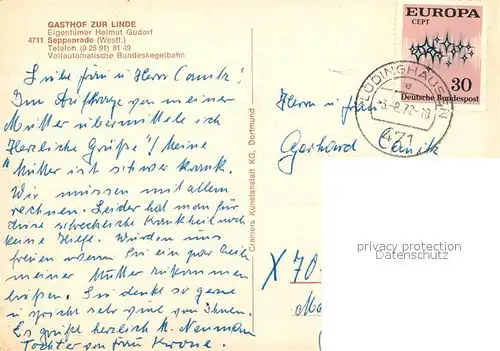 GASTHOF ZUR LINDE
Eigentümer Helmut Gudorf
4711 Seppenrade (Westf.)
Telefon (0 25 91) 81 49
Vollautomatische Bundeskegelbahn
Liebe Frau u Herr Canitz!
Im Auftrage von meiner
Mutter übermittele ich
Herzliche Grüße! Meine
Mutter ist schwer krank.
Wir müssen mit allem
rechnen. Leider hat man für
diese schreckliche Krankheit noch
keine Hilfe. Würden uns
freuen wenn Sie ein paar Zeilen
meiner Mutter zukommen
ließen. Sie denkt so gerne
u spricht sehr viel von Ihnen.
Es grüßt herzlich M. Neumann
Tochter von Frau Krone.
Cramers Kunstanstalt KG, Dortmund
EUROPA
CEPT
30
Deutsche Bundespost
LÜDINGHAUSEN
-8.72-18
471
Herrn u Frau
Gerhard Canitz
X 70
privacy protection
Datenschutz